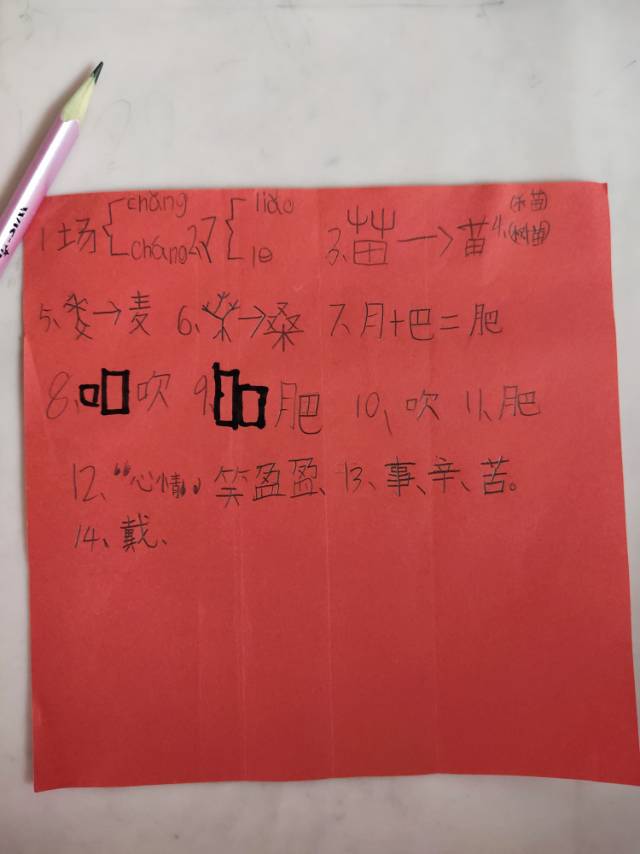 1场{chǎng cháng 2、了{liǎo le 3、苗→苗 4、(禾苗)(树苗)
5、麦→麦 6、桑→桑 7、月+巴=肥
8、吹 9、肥 10、吹 11、肥
12、“心情”笑盈盈、13、事、辛、苦。
14、戴、